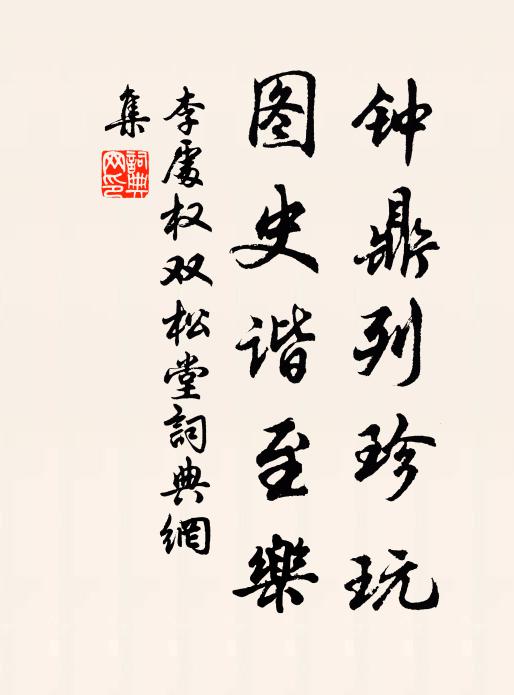 钟鼎列珍玩
图史谐至樂
李處权双松堂詞典網
集
詞典網印